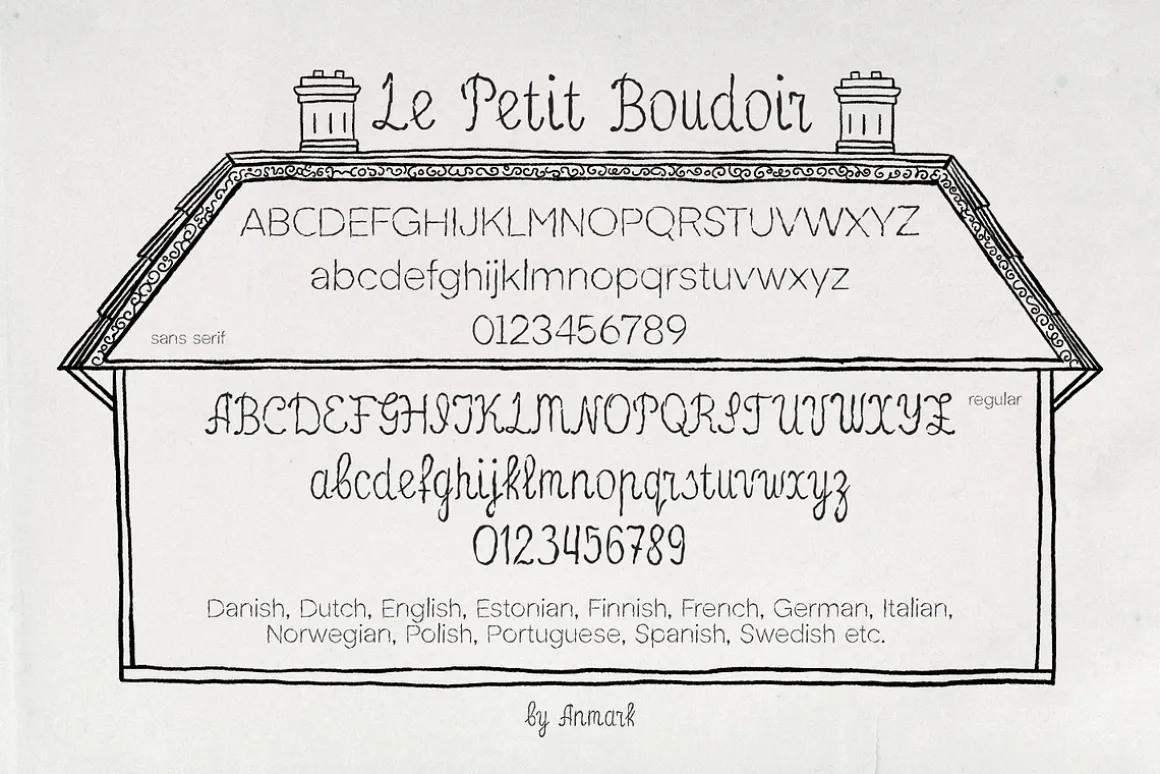 Le Petit Boudoir
ABCDEFGHIJKLMNOPQRSTUVWXYZ
abcdefghijklmnopqrstuvwxyz
0123456789
sans serif
ABCDEFGHIJKLMNOPQRSTUVWXYZ
regular
abcdefghijklmnopqrstuvwxyz
0123456789
Danish, Dutch, English, Estonian, Finnish, French, German, Italian,
Norwegian, Polish, Portuguese, Spanish, Swedish etc.
by Anmark